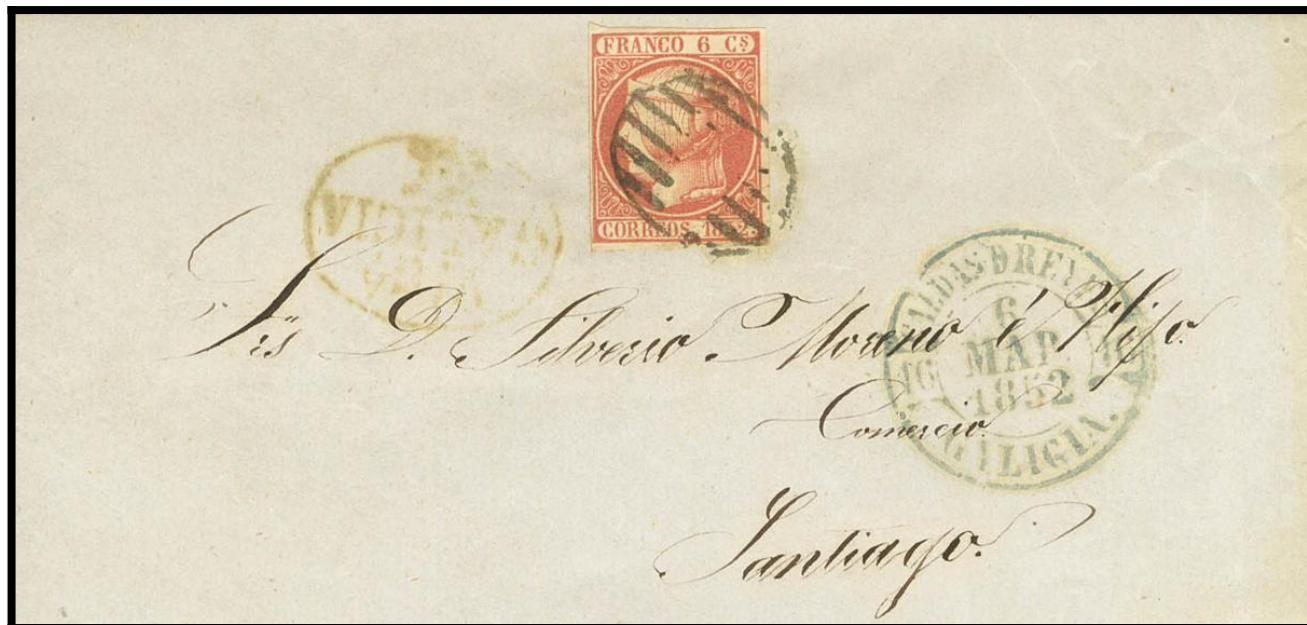 FRANCO 6 Cs
CORREOS 1852.
CALDAS D REYES
6
MAR.
1852
16
GALICIA.
D. Silverio Moreno é Hijo.
Comercio.
Santiago.